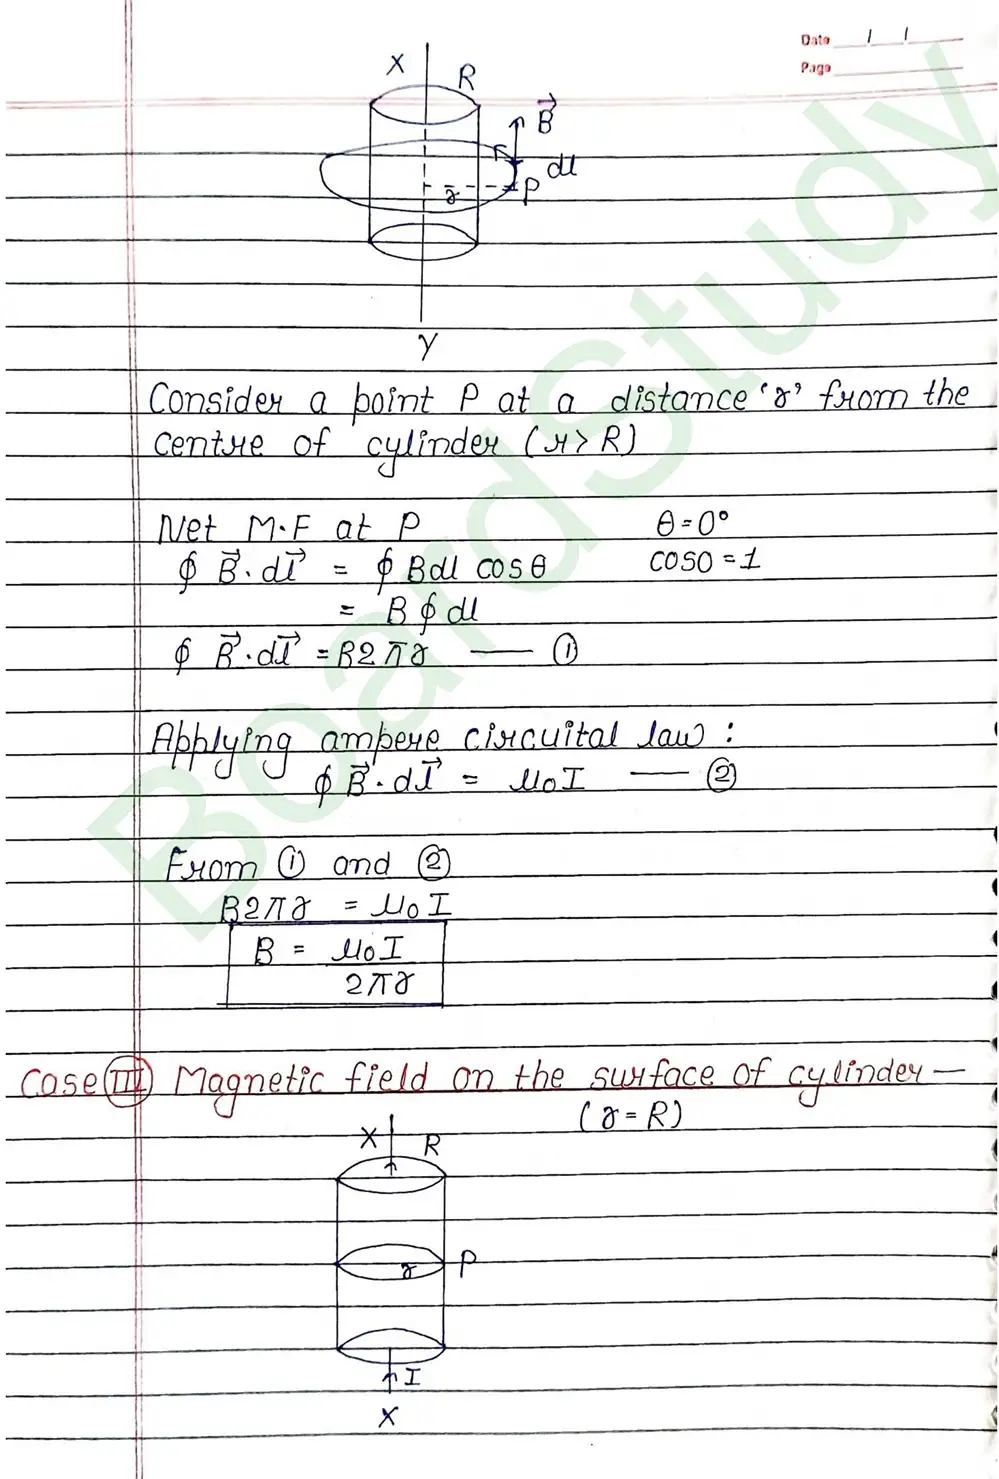 Date / /
Page
X
R
B⃗
dl
r P
Y
Consider a point P at a distance 'r' from the
centre of cylinder (r > R)
Net M.F at P θ = 0°
∮ B⃗ . dl⃗ = ∮ Bdl cosθ cos0 = 1
= B ∮ dl
∮ B⃗ . dl⃗ = B2πr —— ①
Applying ampere circuital law :
∮ B⃗ . dl⃗ = μ₀I —— ②
From ① and ②
B2πr = μ₀I
B = μ₀I
2πr
Case III Magnetic field on the surface of cylinder —
(r = R)
X R
r P
I
X
BoardStudy